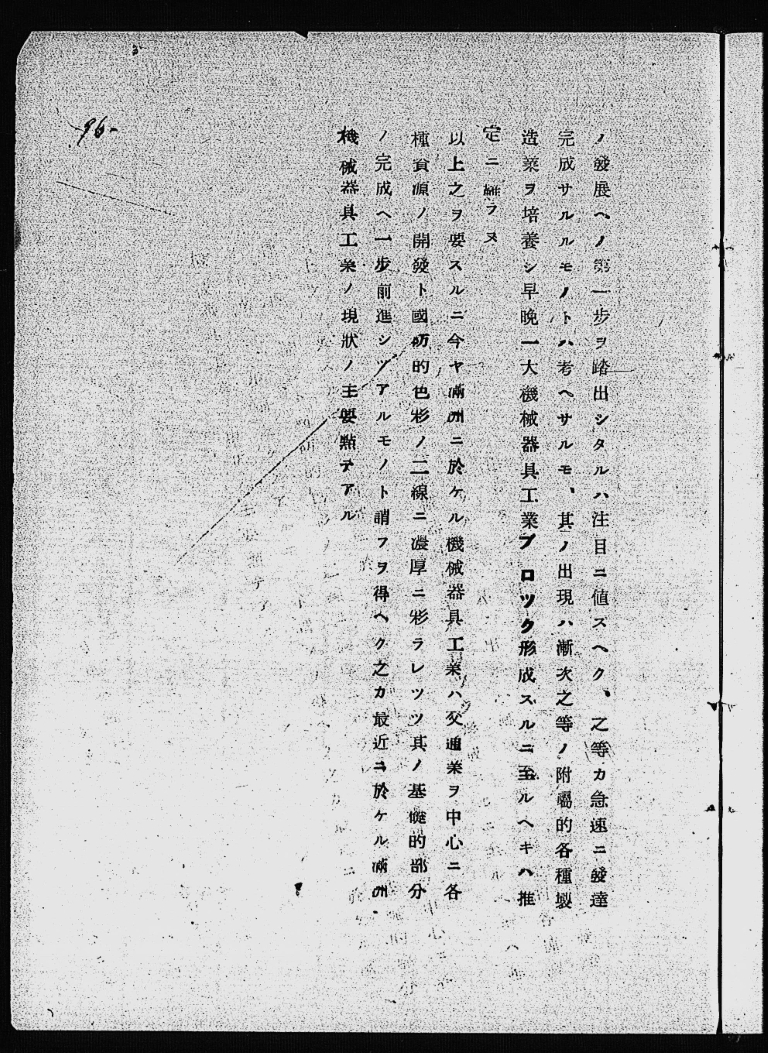 ノ發展ヘノ第一步ヲ踏出シタルハ注目ニ値スヘク、之等カ急速ニ發達
完成サルルモノトハ考ヘサルモ、其ノ出現ハ漸次之等ノ附屬的各種製
造業ヲ培養シ早晩一大機械器具工業ブロック形成スルニ至ルヘキハ推
定ニ難ラヌ
以上之ヲ要スルニ今ヤ滿洲ニ於ケル機械器具工業ハ交通業ヲ中心ニ各
種資源ノ開發ト國防的色彩ノ二線ニ濃厚ニ彩ラレツツ其ノ基礎的部分
ノ完成ヘ一步前進シツアルモノト謂フヲ得ヘク之カ最近ニ於ケル滿洲
機械器具工業ノ現狀ノ主要點テアル
-96-